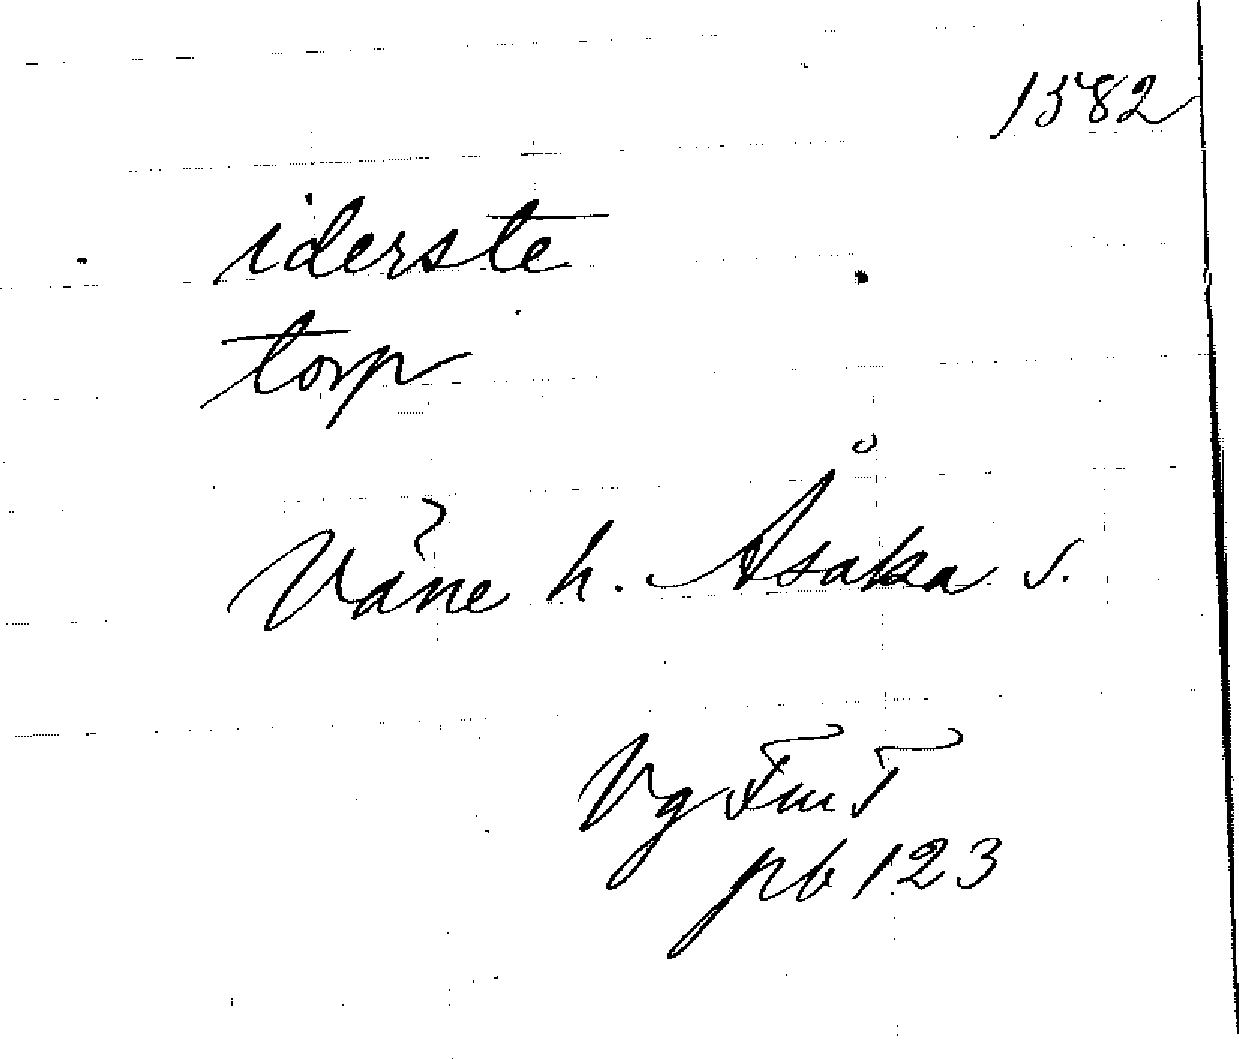 1582
iderste
torp
Väne h. Åsaka s.
Vg Fm T
pb 123